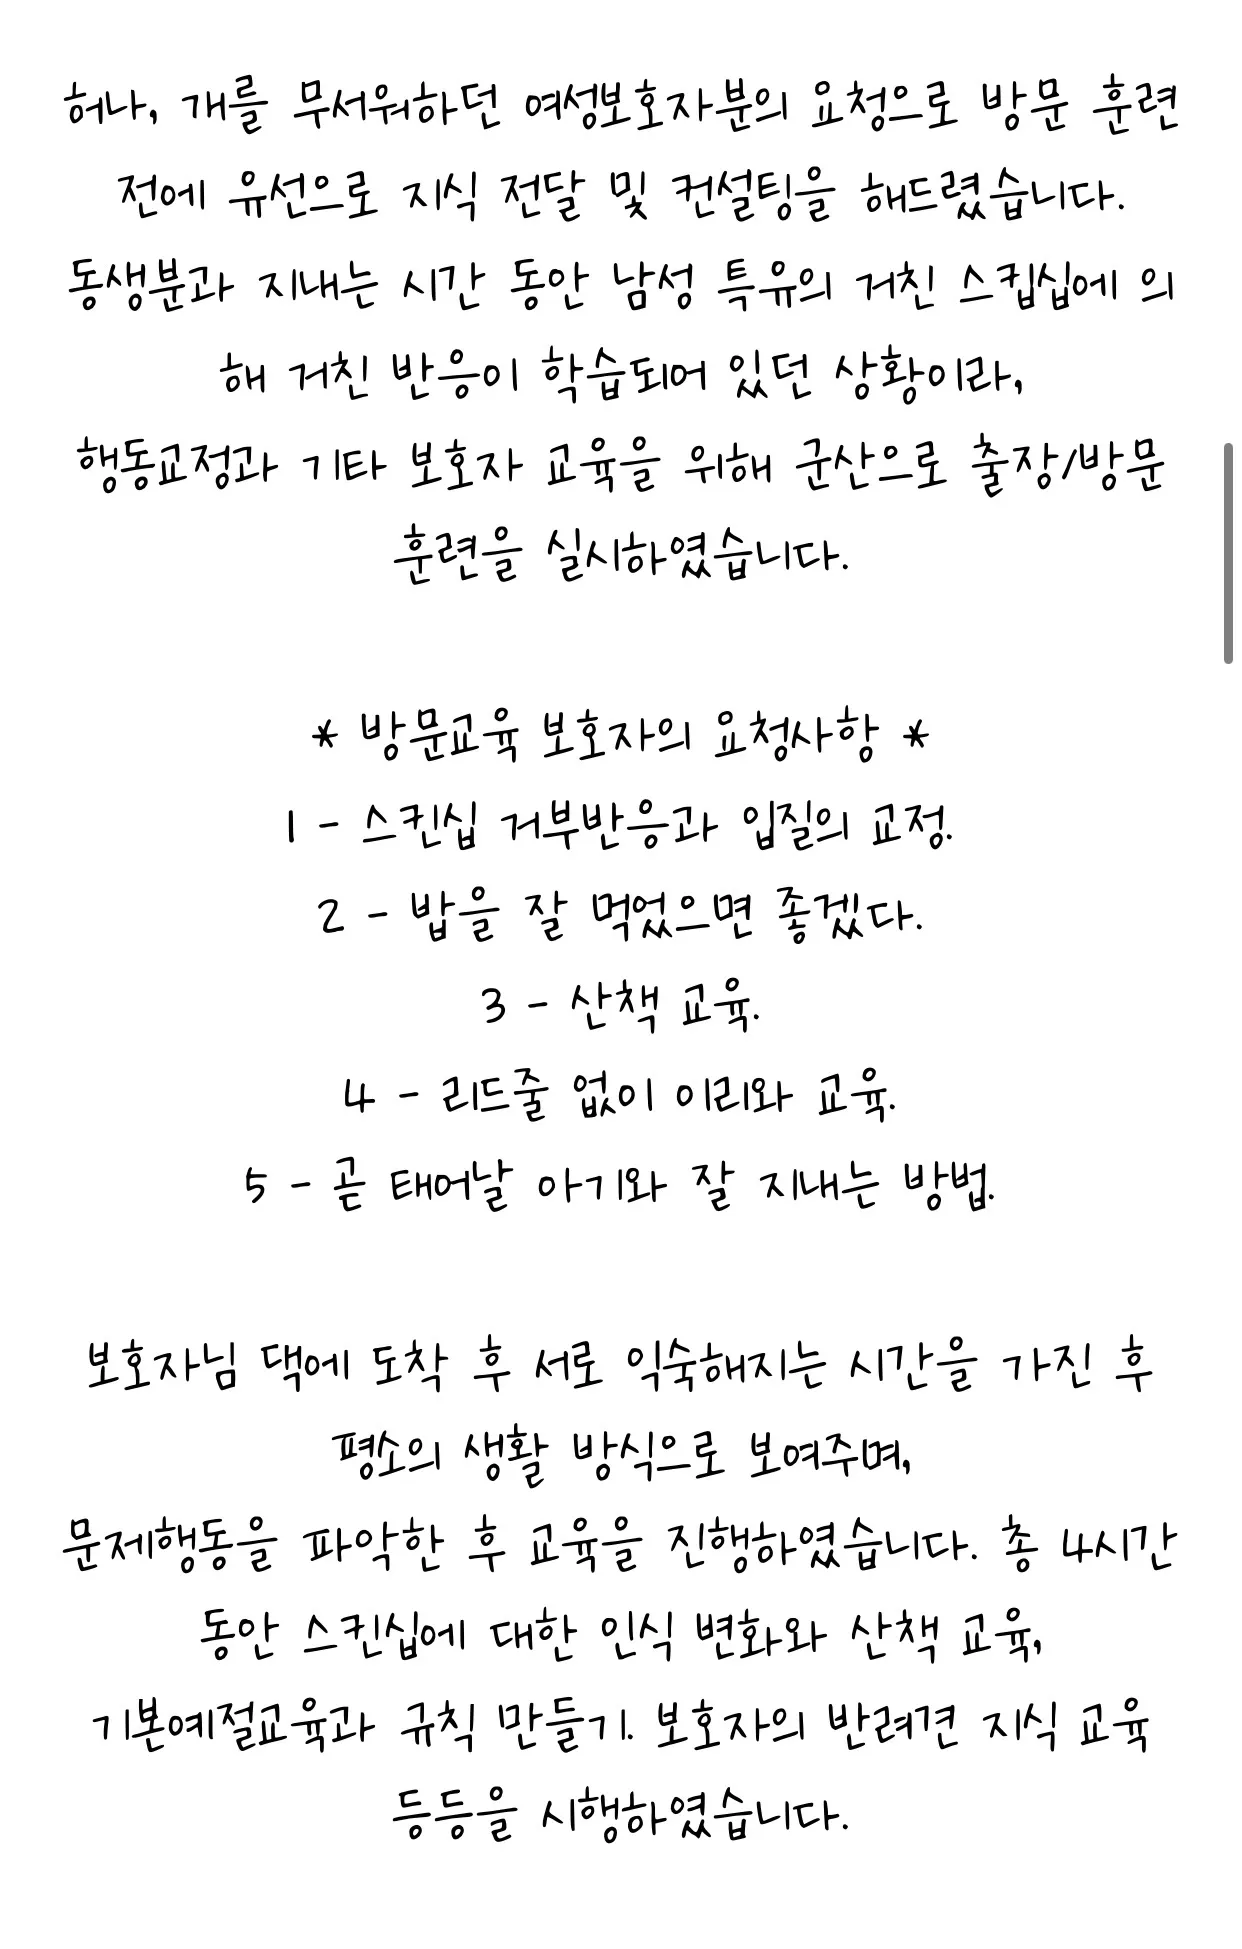 허나, 개를 무서워하던 여성보호자분의 요청으로 방문 훈련
전에 유선으로 지식 전달 및 컨설팅을 해드렸습니다.
동생분과 지내는 시간 동안 남성 특유의 거친 스킵십에 의
해 거친 반응이 학습되어 있던 상황이라,
행동교정과 기타 보호자 교육을 위해 군산으로 출장/방문
훈련을 실시하였습니다.
* 방문교육 보호자의 요청사항 *
1 - 스킨십 거부반응과 입질의 교정.
2 - 밥을 잘 먹었으면 좋겠다.
3 - 산책 교육.
4 - 리드줄 없이 이리와 교육.
5 - 곧 태어날 아기와 잘 지내는 방법.
보호자님 댁에 도착 후 서로 익숙해지는 시간을 가진 후
평소의 생활 방식으로 보여주며,
문제행동을 파악한 후 교육을 진행하였습니다. 총 4시간
동안 스킨십에 대한 인식 변화와 산책 교육,
기본예절교육과 규칙 만들기. 보호자의 반려견 지식 교육
등등을 시행하였습니다.